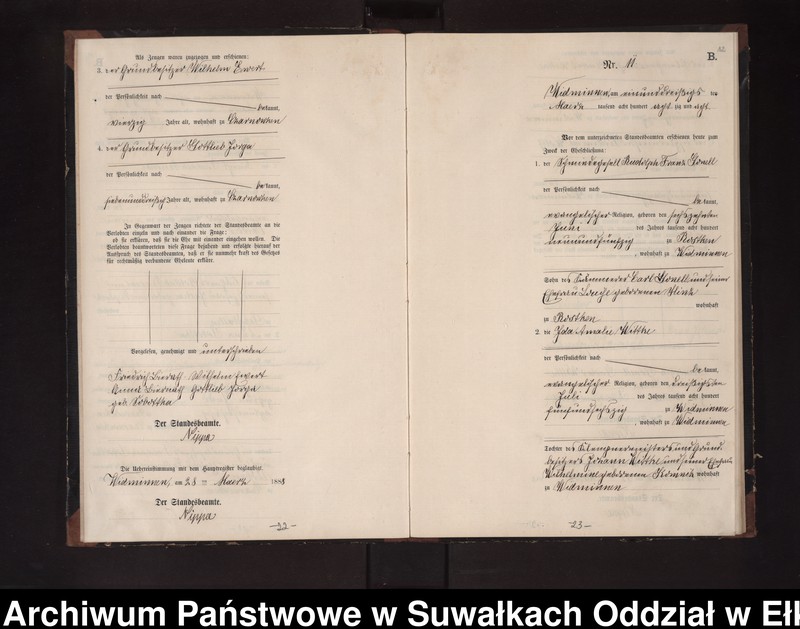 Als Zeugen waren zugezogen und erschienen:
3. der Grundbesitzer Wilhelm Ewert
der Persönlichkeit nach
bekannt,
vierzig Jahre alt, wohnhaft zu Czarnowken
4. der Grundbesitzer Gottlieb Jorga
der Persönlichkeit nach
bekannt,
siebenunddreißig Jahre alt, wohnhaft zu Czarnowken
In Gegenwart der Zeugen richtete der Standesbeamte an die
Verlobten einzeln und nach einander die Frage:
ob sie erklären, daß sie die Ehe mit einander eingehen wollen. Die
Verlobten beantworteten diese Frage bejahend und erfolgte hierauf der
Ausspruch des Standesbeamten, daß er sie nunmehr kraft des Gesetzes
für rechtmäßig verbundene Eheleute erkläre.
Vorgelesen, genehmigt und unterschrieben
Friedrich Biernath Wilhelm Ewert
Anna Biernath Gottlieb Jorga
geb. Sobottka
Der Standesbeamte.
Nippa
Die Uebereinstimmung mit dem Hauptregister beglaubigt.
Widminnen, am 28 ten Maerz 1888
Der Standesbeamte.
Nippa
-22-
B.
Nr. 11
Widminnen, am einunddreißigsten
Maerz tausend acht hundert achtzig und acht
Vor dem unterzeichneten Standesbeamten erschienen heute zum
Zweck der Eheschließung:
1. der Schmiedegesell Rudolph Franz
der Persönlichkeit nach
bekannt,
evangelischer Religion, geboren den sechszehnten
Juni des Jahres tausend acht hundert
neunundfünfzig zu Rosthen
, wohnhaft zu Widminnen
Sohn des Carl und seiner
Ehefrau Louise geborenen
wohnhaft
zu Rosthen
2. die Ida Amalie Wittke
der Persönlichkeit nach
bekannt,
evangelischer Religion, geboren den dreißigsten
Juli des Jahres tausend acht hundert
fünfundsechszig zu Widminnen
, wohnhaft zu Widminnen
Tochter des Klempnermeisters und Grund-
besitzers Johann Wittke und seiner Ehefrau
Wilhelmine geborenen wohnhaft
zu Widminnen
-23-
Archiwum Państwowe w Suwałkach Oddział w Ełk